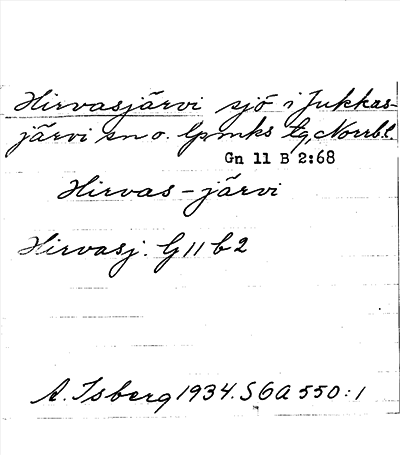 Hirvasjärvi sjö i Jukkas-
järvi sn o. lpmks tg, Norrbl.
Gn 11 B 2:68
Hirvas-järvi
Hirvasj. G 11 b 2
A. Isberg 1934. S 6 A 550:1